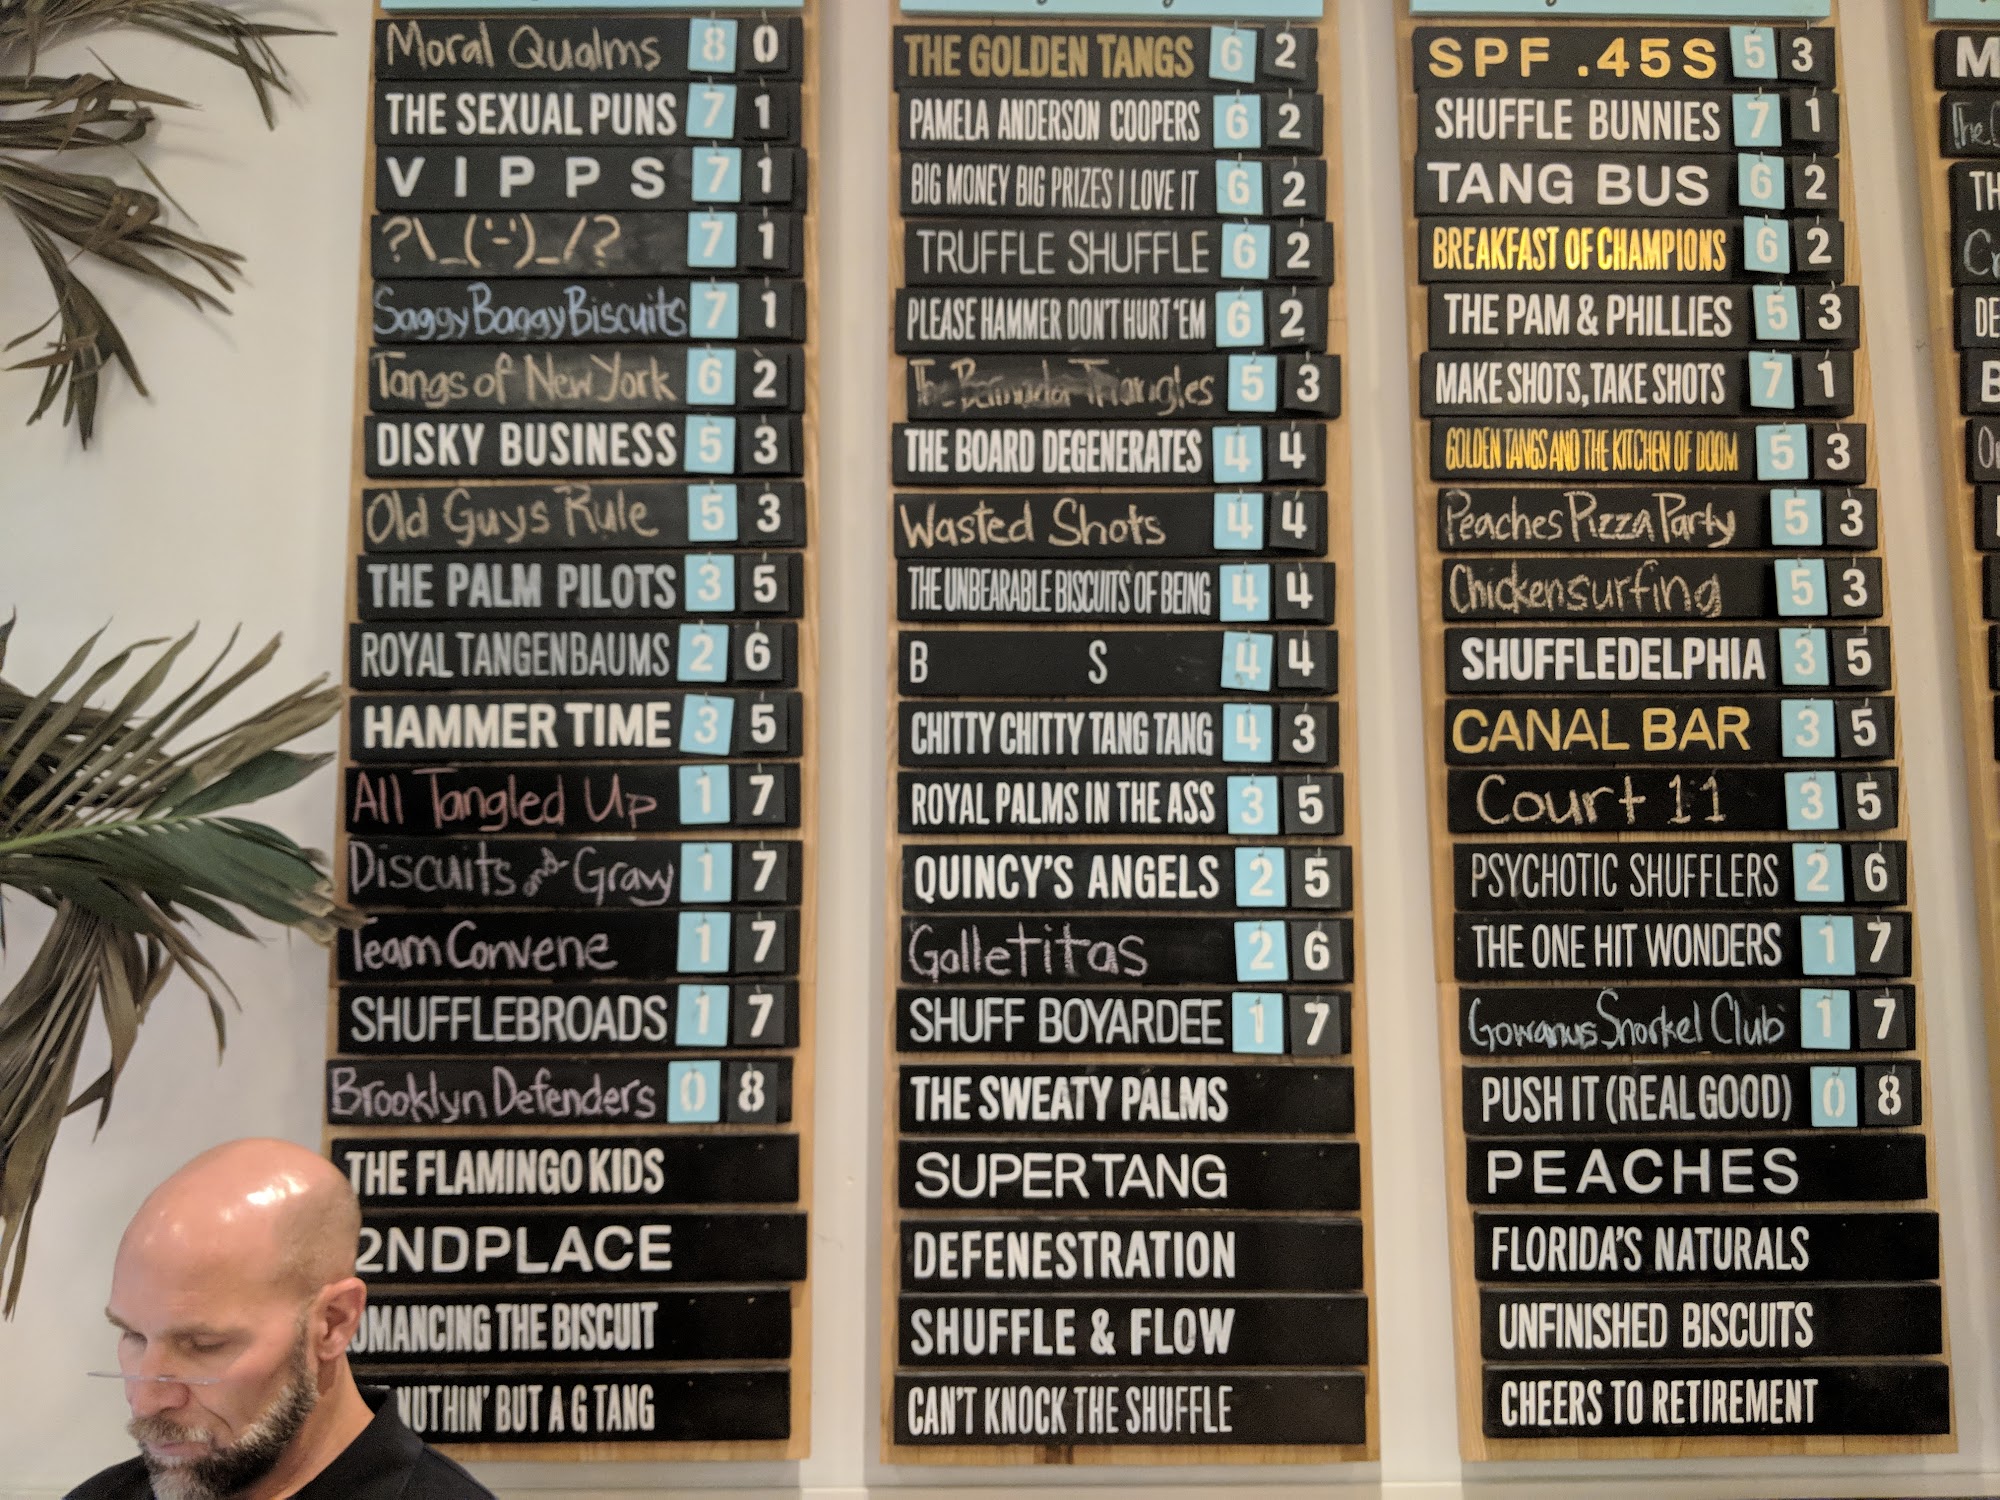 Moral Qualms 8 0
THE SEXUAL PUNS 7 1
VIPPS 7 1
?\_('-')_/? 7 1
Saggy Baggy Biscuits 7 1
Tangs of New York 6 2
DISKY BUSINESS 5 3
Old Guys Rule 5 3
THE PALM PILOTS 3 5
ROYAL TANGENBAUMS 2 6
HAMMER TIME 3 5
All Tangled Up 1 7
Discuits and Gravy 1 7
Team Convene 1 7
SHUFFLEBROADS 1 7
Brooklyn Defenders 0 8
THE FLAMINGO KIDS
2NDPLACE
OMANCING THE BISCUIT
NUTHIN' BUT A G TANG
THE GOLDEN TANGS 6 2
PAMELA ANDERSON COOPERS 6 2
BIG MONEY BIG PRIZES I LOVE IT 6 2
TRUFFLE SHUFFLE 6 2
PLEASE HAMMER DON'T HURT 'EM 6 2
The Bermuda Triangles 5 3
THE BOARD DEGENERATES 4 4
Wasted Shots 4 4
THE UNBEARABLE BISCUITS OF BEING 4 4
B S 4 4
CHITTY CHITTY TANG TANG 4 3
ROYAL PALMS IN THE ASS 3 5
QUINCY'S ANGELS 2 5
Galletitas 2 6
SHUFF BOYARDEE 1 7
THE SWEATY PALMS
SUPERTANG
DEFENESTRATION
SHUFFLE & FLOW
CAN'T KNOCK THE SHUFFLE
SPF .45S 5 3
SHUFFLE BUNNIES 7 1
TANG BUS 6 2
BREAKFAST OF CHAMPIONS 6 2
THE PAM & PHILLIES 5 3
MAKE SHOTS, TAKE SHOTS 7 1
GOLDEN TANGS AND THE KITCHEN OF DOOM 5 3
Peaches Pizza Party 5 3
Chickensurfing 5 3
SHUFFLEDELPHIA 3 5
CANAL BAR 3 5
Court 11 3 5
PSYCHOTIC SHUFFLERS 2 6
THE ONE HIT WONDERS 1 7
Gowanus Snorkel Club 1 7
PUSH IT (REAL GOOD) 0 8
PEACHES
FLORIDA'S NATURALS
UNFINISHED BISCUITS
CHEERS TO RETIREMENT